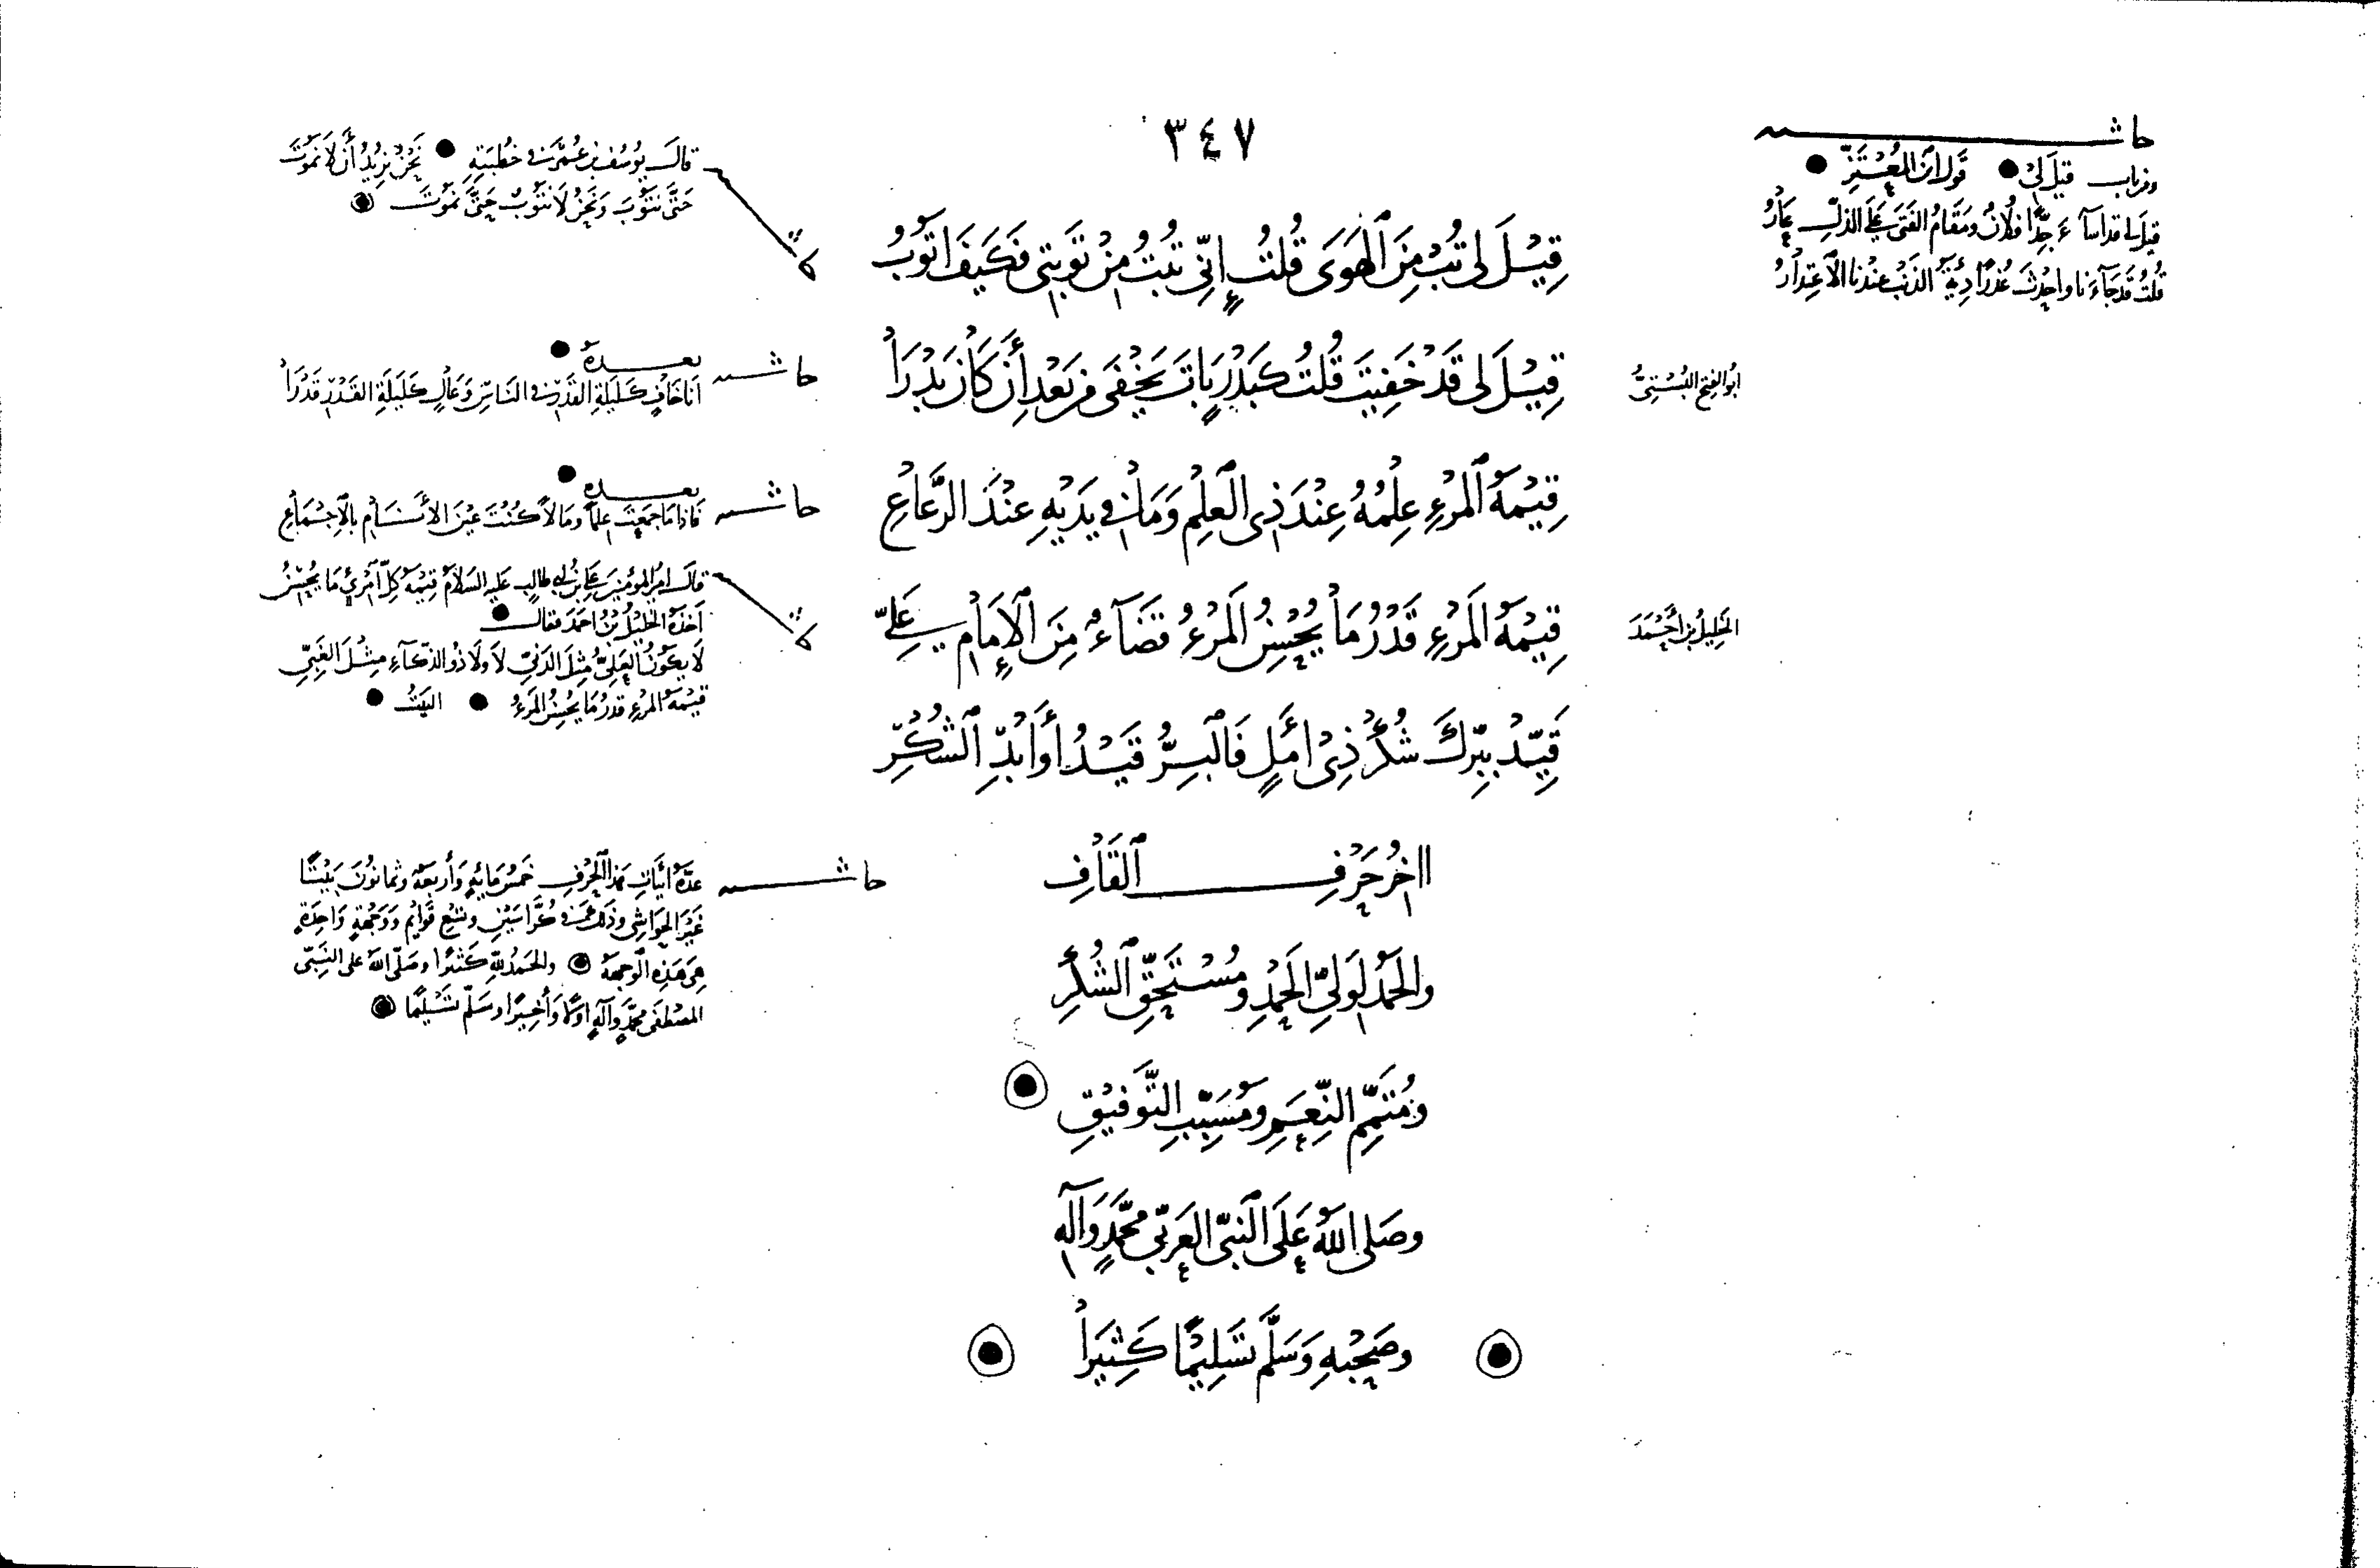 ٣٤٧
حاشية
ومن باب قيل لي ● قول ابن المعتز ●
قيل لي قد اساء جدا فلان ومقام الفتى على الذل عار
قلت قد جاءنا واحدث عذرا دية الذنب عندنا الاعتذار
قِيْلَ لي تُبْ مِنَ الهَوَى قُلتُ إِنِّي تُبْتُ مِنْ تَوبَتِي فَكَيفَ اتُوبُ
قال يوسف بن عمر في خطبته ● نحن نريد أن لا نموت
حتى نتوب ونحن لا نتوب حتى نموت
أبو الفتح البستي
قِيْلَ لي قَدْ خَفِيتَ قُلتُ كَبَدْرٍ بَاتَ يَخْفَى مِن بَعْدِ أَن كَانَ بَدْرَا
حاشية
بعده ●
انا خاف كليلة القدر في الناس وعال كليلة القدر قدرا
قِيْمَةُ المَرْءِ عِلْمُهُ عِنْدَ ذِي العِلْمِ وَمَا في يَدَيْهِ عِنْدَ الرَّعَاعِ
حاشية
بعده ●
فاذا ما جمعت علما ومالا كنت عين الأنام بالاجماع
الخليل بن أحمد
قِيْمَةُ المَرْءِ قَدْرُ مَا يُحْسِنُ المَرْءُ قَضَاءٌ مِنَ الإِمَامِ عَلِيِّ
قال امير المؤمنين علي بن ابي طالب عليه السلام قيمة كل امرئ ما يحسن
أخذه الخليل بن احمد فقال ●
لا يكون العلي مثل الدني لا ولا ذو الذكاء مثل الغبي
قيمة المرء قدر ما يحسن المرء ● البيت ●
قَيِّدْ بِبِرِّكَ شُكْرَ ذِي أَمَلٍ فَالبِرُّ قَيْدُ أَوَابِدِ الشُّكْرِ
اخِرُ حَرْفِ القَافِ
حاشية
عدة ابيات هذا الحرف خمس مائة وأربعة وثمانون بيتا
غير الحواشي وذلك في كراسين وتسع قوائم ووجهة واحدة
هي هذه الوجهة والحمد لله كثيرا وصلى الله على النبي
المصطفى محمد وآله اولا وأخيرا وسلم تسليما
والحَمْدُ لِوَليِّ الحَمْدِ ومُسْتَحِقِّ الشُّكْرِ
ومُتَمِّمِ النِّعَمِ ومُسَبِّبِ التَّوفيْقِ
وصَلى اللهُ عَلَى النَبيِّ العَرَبي مُحَمَّدٍ وَآلِهِ
وصَحْبِهِ وَسَلَّمَ تَسْلِيْمًا كَثِيْرَا